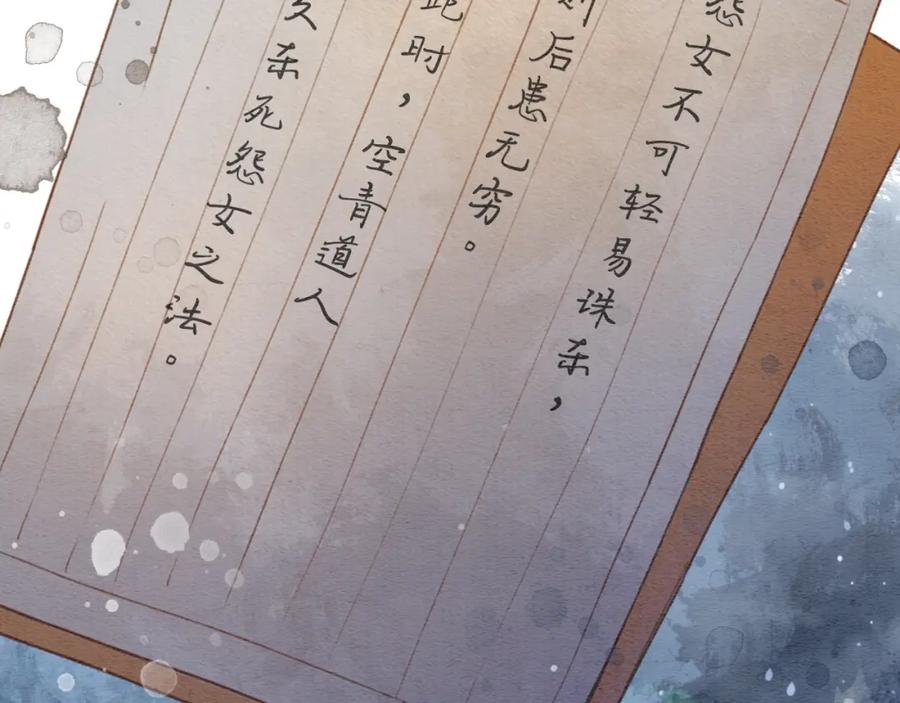 怨女不可轻易诛杀，
则后患无穷。
此时，空青道人
杀死怨女之法。